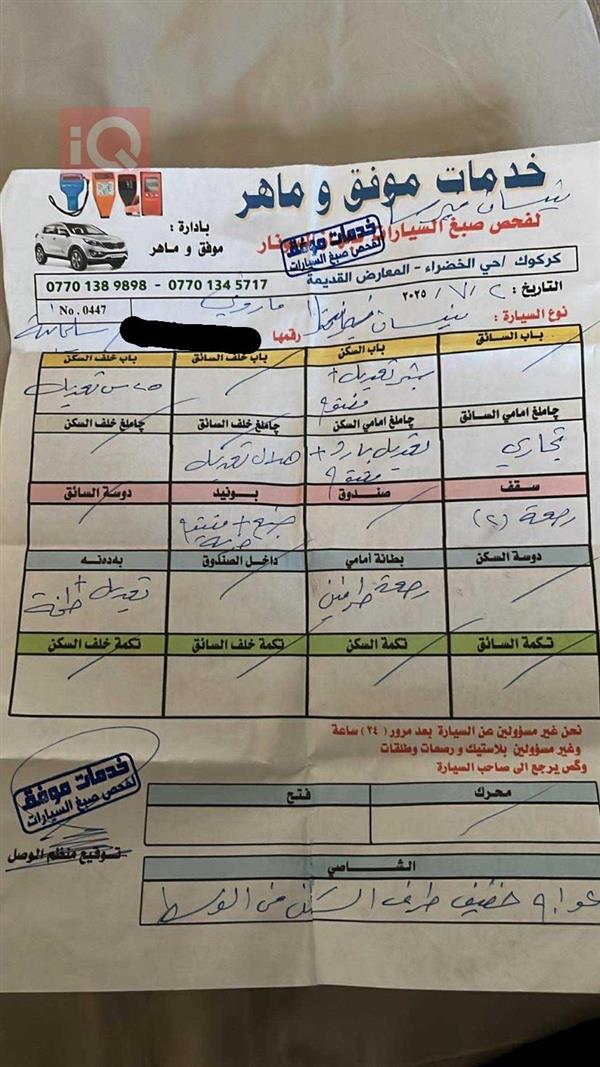 iQ
خدمات موفق و ماهر
لفحص صبغ السيارات
خدمات موفق
لفحص صبغ السيارات
بادارة :
موفق و ماهر
كركوك /حي الخضراء - المعارض القديمة
0770 138 9898 - 0770 134 5717
التاريخ : ٢ / ٧ / ٢٠٢٥
No . 0447
نوع السيارة : نيسان
ماروني
رقمها
سليمانية
باب السائق
باب السكن
باب خلف السائق
باب خلف السكن
تعديل +
تعديل
چاملغ امامي السائق
چاملغ امامي السكن
چاملغ خلف السائق
چاملغ خلف السكن
تجاري
تعديل بارد +
هلال تعديل
سقف
صندوق
بونيد
دوسة السائق
رصعة (٢)
صبغ +
دوسة السكن
بطانة أمامي
داخل الصندوق
بەدەنە
رصعة
تعديل +
تكمة السائق
تكمة السكن
تكمة خلف السائق
تكمة خلف السكن
نحن غير مسؤولين عن السيارة بعد مرور (٢٤) ساعة
وغير مسؤولين بلاستيك و رصعات وطلقات
وگص يرجع الى صاحب السيارة
خدمات موفق
لفحص صبغ السيارات
توقيع منظم الوصل
محرك
فتح
الشاصي
خفيف طرف السكن من الوسط